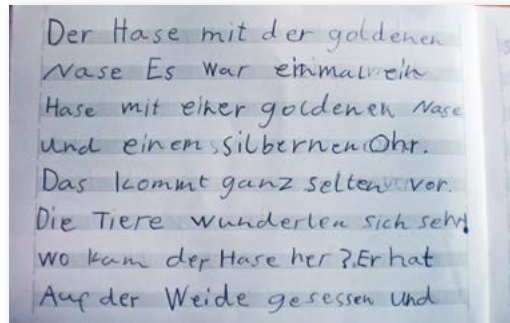 Der Hase mit der goldenen
Nase Es war einmal ein
Hase mit einer goldenen Nase
und einem silbernen Ohr.
Das kommt ganz selten vor.
Die Tiere wunderten sich sehr!
wo kam der Hase her? Er hat
Auf der Weide gesessen und